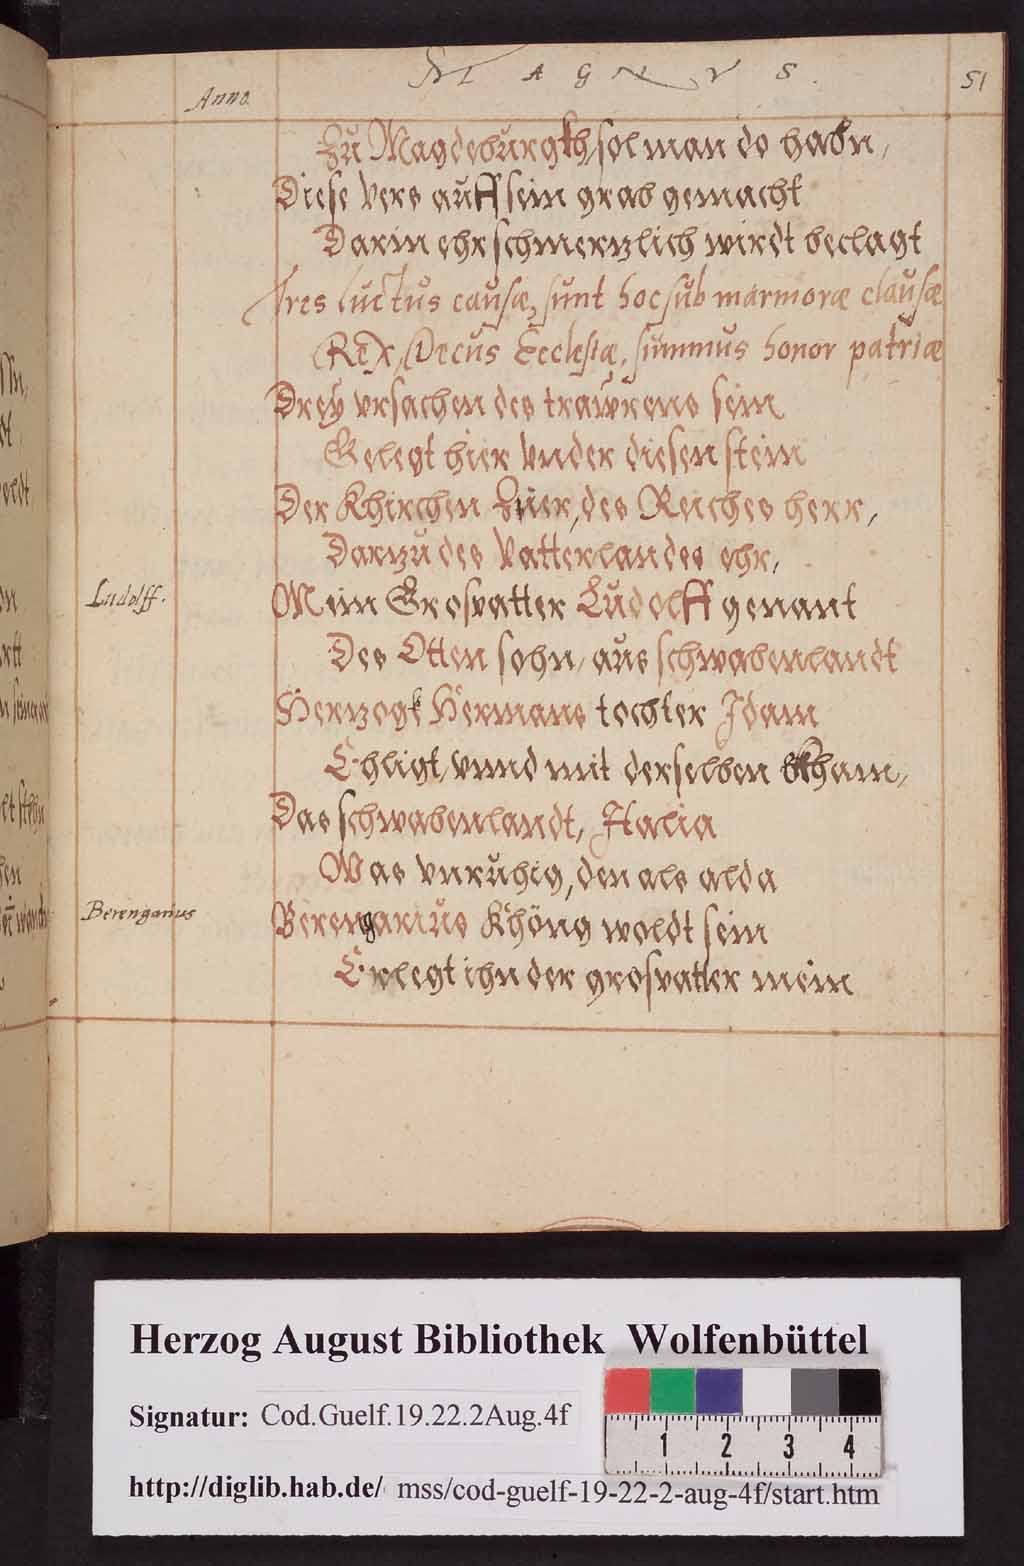 MAGNVS.
51
Anno.
Zu Magdeburgkh, sol man do habn,
Diese Vers auff sein grab gemacht
Darin ehr schmertzlich wirdt beclagt
Tres luctus causæ, sunt hoc sub marmoræ clausæ
Rex, Decus Ecclesiæ, summus honor patriæ
Dreÿ vrsachen des trawrens sein
Gelegt hier Vnder diesen stein
Der Khirchen Zier, des Reiches herr,
Dartzu des Vatterlandes ehr,
Ludolff.
Mein Grosvatter Ludolff genant
Des Otten sohn, aus schwabenlandt
Hertzogk Hermans tochter Idam
Ehligt, vnnd mit derselben bkham,
Das schwabenlandt, Italia
Was vnruhig, den als alda
Berengarius
Berengarius Khöng woldt sein
Erlegt ihn der grosvatter mein
Herzog August Bibliothek Wolfenbüttel
Signatur: Cod.Guelf.19.22.2Aug.4f
1 2 3 4
http://diglib.hab.de/ mss/cod-guelf-19-22-2-aug-4f/start.htm